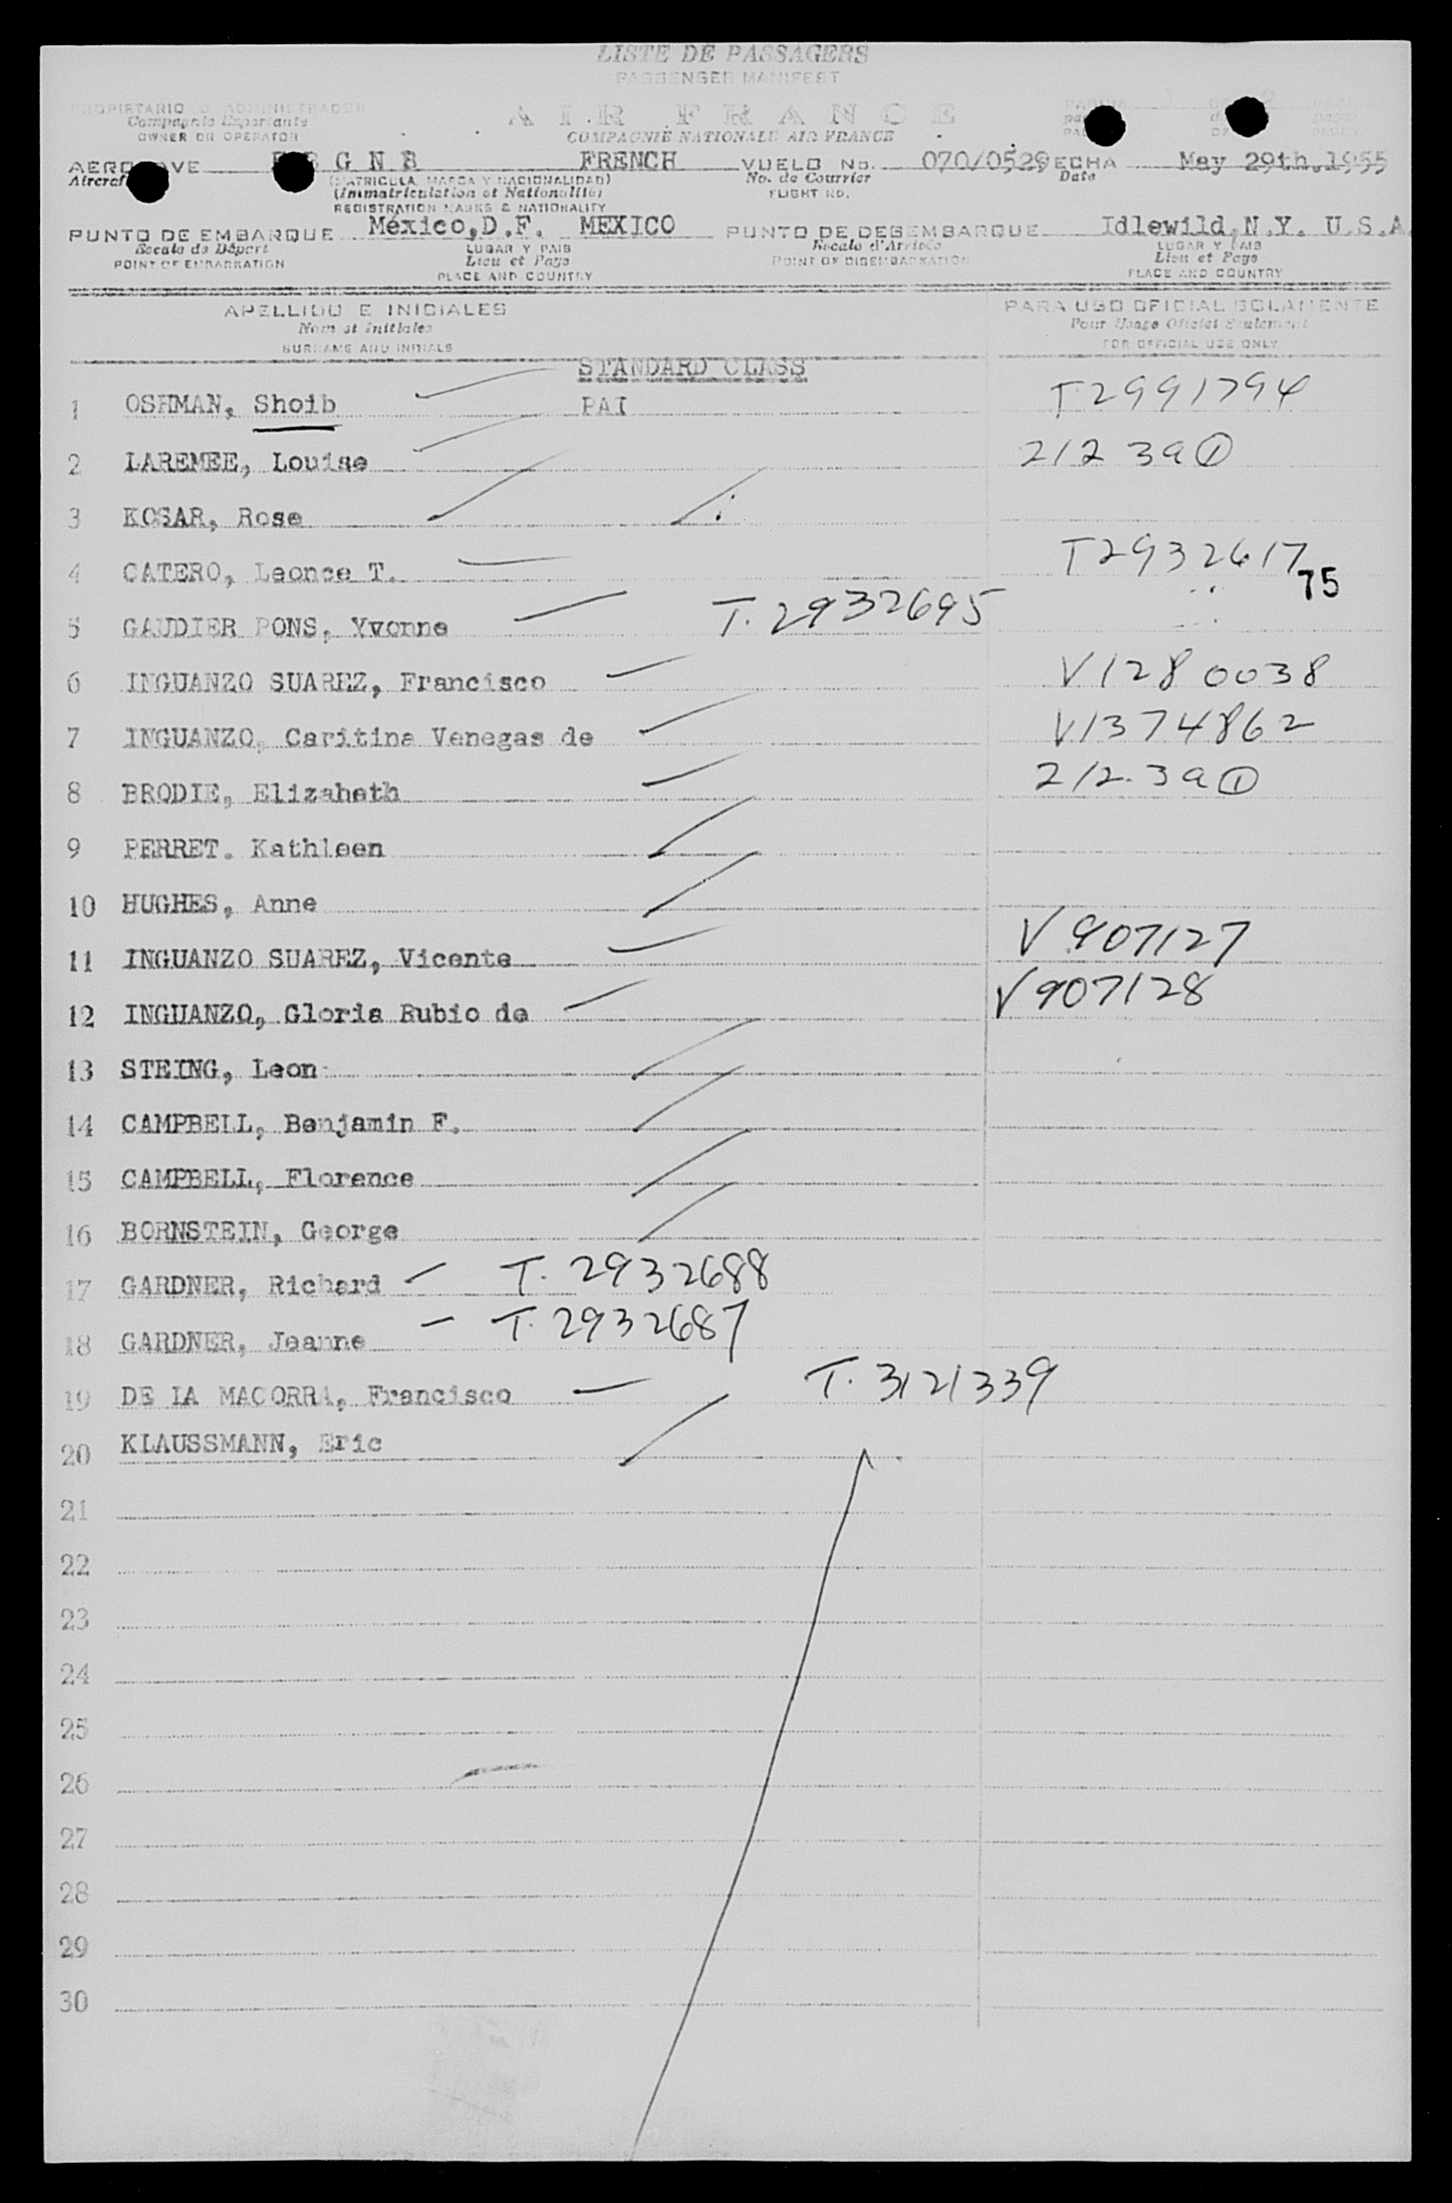 LISTE DE PASSAGERS
PASSENGER MANIFEST
PROPIETARIO O ADMINISTRADOR
Compagnie Exportante
OWNER OR OPERATOR
AIR FRANCE
COMPAGNIE NATIONALE AIR FRANCE
AERONAVE G N B FRENCH VUELO No. 070/0529 FECHA May 29th,1955
Aircraft (MATRICULA, MARCA Y NACIONALIDAD) No. de Courrier Date
(Immatriculation et Nationalité) FLIGHT NO.
REGISTRATION MARKS & NATIONALITY
PUNTO DE EMBARQUE México,D.F. MEXICO PUNTO DE DESEMBARQUE Idlewild,N.Y. U.S.A.
Escale de Départ LUGAR Y PAIS Escale d'Arrivée LUGAR Y PAIS
POINT OF EMBARKATION Lieu et Pays POINT OF DISEMBARKATION Lieu et Pays
PLACE AND COUNTRY PLACE AND COUNTRY
APELLIDO E INICIALES PARA USO OFICIAL SOLAMENTE
Nom et Initiales Pour Usage Officiel Seulement
SURNAME AND INITIALS FOR OFFICIAL USE ONLY
STANDARD CLASS
1 OSHMAN, Shoib PAI T2991794
2 LAREMEE, Louise 212 3a ①
3 KOSAR, Rose
4 CATERO, Leonce T. T2932617
75
5 GAUDIER PONS, Yvonne T. 2932695
6 INGUANZO SUAREZ, Francisco V1280038
7 INGUANZO, Caritina Venegas de V1374862
8 BRODIE, Elizabeth 212. 3a ①
9 PERRET. Kathleen
10 HUGHES, Anne
11 INGUANZO SUAREZ, Vicente V 907127
12 INGUANZO, Gloria Rubio de V 907128
13 STEING, Leon
14 CAMPBELL, Benjamin F.
15 CAMPBELL, Florence
16 BORNSTEIN, George
17 GARDNER, Richard - T. 2932688
18 GARDNER, Jeanne - T. 2932687
19 DE LA MACORRA, Francisco T. 3121339
20 KLAUSSMANN, Eric
21
22
23
24
25
26
27
28
29
30